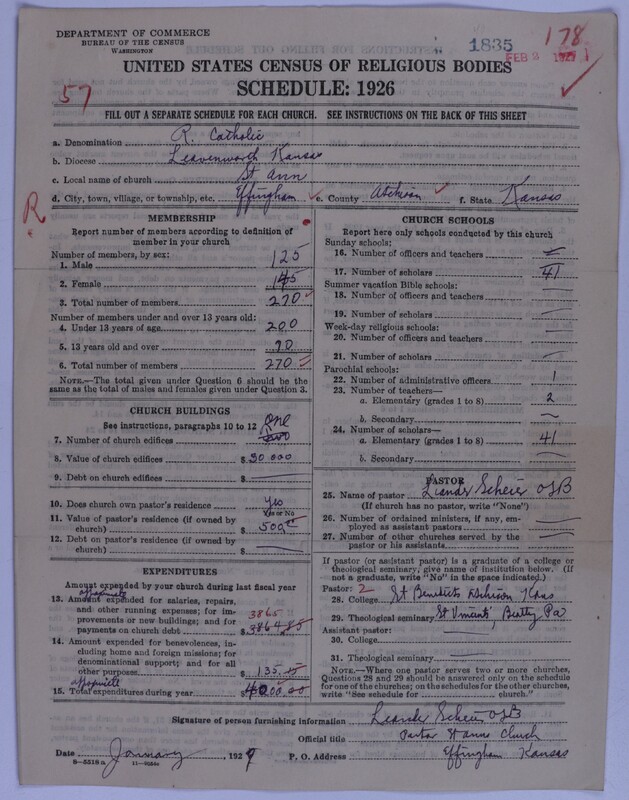 DEPARTMENT OF COMMERCE
BUREAU OF THE CENSUS
WASHINGTON
1835
178
FEB 3 1927
57
UNITED STATES CENSUS OF RELIGIOUS BODIES
SCHEDULE: 1926
FILL OUT A SEPARATE SCHEDULE FOR EACH CHURCH. SEE INSTRUCTIONS ON THE BACK OF THIS SHEET
a. Denomination R. Catholic
b. Diocese Leavenworth Kansas
c. Local name of church St Ann
d. City, town, village, or township, etc. Effingham e. County Atchison f. State Kansas
R
MEMBERSHIP
Report number of members according to definition of member in your church
Number of members, by sex:
1. Male 125
2. Female 145
3. Total number of members 270
Number of members under and over 13 years old:
4. Under 13 years of age 200
5. 13 years old and over 90
6. Total number of members 270
NOTE.—The total given under Question 6 should be the same as the total of males and females given under Question 3.
CHURCH BUILDINGS
See instructions, paragraphs 10 to 12
7. Number of church edifices One
8. Value of church edifices $ 30 000
9. Debt on church edifices $
10. Does church own pastor's residence yes
Yes or No
11. Value of pastor's residence (if owned by church) $ 500
12. Debt on pastor's residence (if owned by church) $
EXPENDITURES
Amount expended by your church during last fiscal year
13. Amount expended for salaries, repairs, and other running expenses; for improvements or new buildings; and for payments on church debt $ 3864.85
3865
14. Amount expended for benevolences, including home and foreign missions; for denominational support; and for all other purposes $ 135.15
15. Total expenditures during year $ 4000.00
CHURCH SCHOOLS
Report here only schools conducted by this church
Sunday schools:
16. Number of officers and teachers
17. Number of scholars 41
Summer vacation Bible schools:
18. Number of officers and teachers
19. Number of scholars
Week-day religious schools:
20. Number of officers and teachers
21. Number of scholars
Parochial schools:
22. Number of administrative officers 1
23. Number of teachers—
a. Elementary (grades 1 to 8) 2
b. Secondary
24. Number of scholars—
a. Elementary (grades 1 to 8) 41
b. Secondary
PASTOR
25. Name of pastor Leander Scheier OSB
(If church has no pastor, write "None")
26. Number of ordained ministers, if any, employed as assistant pastors
27. Number of other churches served by the pastor or his assistants
If pastor (or assistant pastor) is a graduate of a college or theological seminary, give name of institution below. (If not a graduate, write "No" in the space indicated.)
Pastor: 2
28. College St Benedicts Atchison Kans
29. Theological seminary St Vincents, Beatty Pa
Assistant pastor:
30. College
31. Theological seminary
NOTE.—Where one pastor serves two or more churches, Questions 28 and 29 should be answered only on the schedule for one of the churches; on the schedules for the other churches, write "See schedule for church."
Signature of person furnishing information Leander Scheier OSB
Official title Pastor St Anns Church
Date January 1927 P. O. Address Effingham Kansas
8—5518 a